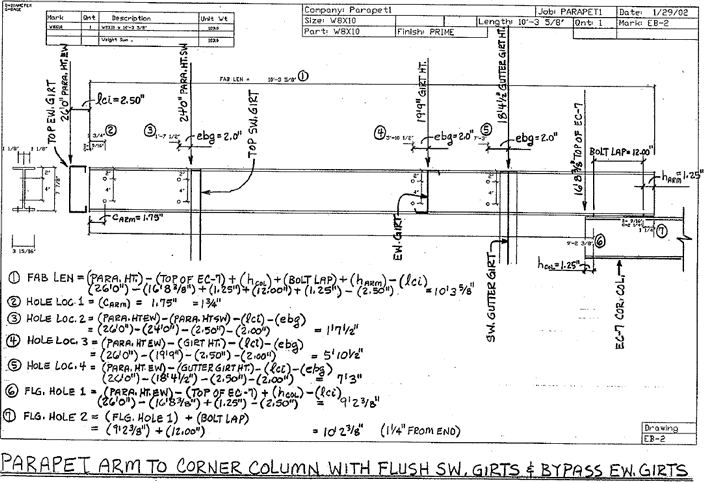 D=DIAMETER
G=GAGE
Mark Qnt Description Unit Wt
W8X10 1 W8X10 x 10'-3 5/8"
Weight Sum .
Company: Parapet1 Job: PARAPET1 Date: 1/29/02
Size: W8X10 Length: 10'-3 5/8" Qnt: 1 Mark: EB-2
Part: W8X10 Finish: PRIME
FAB LEN = 10'-3 5/8" ①
TOP EW. GIRT
26'0" PARA. HT. EW
lci = 2.50"
24'0" PARA. HT. SW
TOP SW. GIRT
19'9" GIRT HT.
EW. GIRT
18'4½" GUTTER GIRT HT.
SW. GUTTER GIRT
16'8⅜" TOP OF EC-7
BOLT LAP = 12.00"
hARM = 1.25"
② ③ 1'-7 1/2" ebg = 2.0"
④ 5'-10 1/2" ebg = 2.0"
⑤ 7'-3" ebg = 2.0"
1 1/8" 1 1/8"
7 7/8"
3 15/16"
2"
4"
CARM = 1.75"
9'-2 3/8" ⑥
⑦
hCOL = 1.25"
EC-7 COR. COL.
① FAB LEN = (PARA. HT.) - (TOP OF EC-7) + (hCOL) + (BOLT LAP) + (hARM) - (lci)
(26'0") - (16'8 3/8") + (1.25") + (12.00") + (1.25") - (2.50") = 10'3 5/8"
② HOLE LOC. 1 = (CARM) = 1.75" = 1¾"
③ HOLE LOC. 2 = (PARA. HT EW) - (PARA. HT SW) - (lci) - (ebg)
= (26'0") - (24'0") - (2.50") - (2.00") = 1'7½"
④ HOLE LOC. 3 = (PARA. HT EW) - (GIRT HT.) - (lci) - (ebg)
= (26'0") - (19'9") - (2.50") - (2.00") = 5'10½"
⑤ HOLE LOC. 4 = (PARA. HT EW) - (GUTTER GIRT HT.) - (lci) - (ebg)
= (26'0") - (18'4½") - (2.50") - (2.00") = 7'3"
⑥ FLG. HOLE 1 = (PARA. HT. EW) - (TOP OF EC-7) + (hCOL) - (lci)
(26'0") - (16'8 3/8") + (1.25") - (2.50") = 9'2 3/8"
⑦ FLG. HOLE 2 = (FLG. HOLE 1) + (BOLT LAP)
= (9'2 3/8") + (12.00") = 10'2 3/8" (1¼" FROM END)
Drawing
EB-2
PARAPET ARM TO CORNER COLUMN WITH FLUSH SW. GIRTS & BYPASS EW. GIRTS